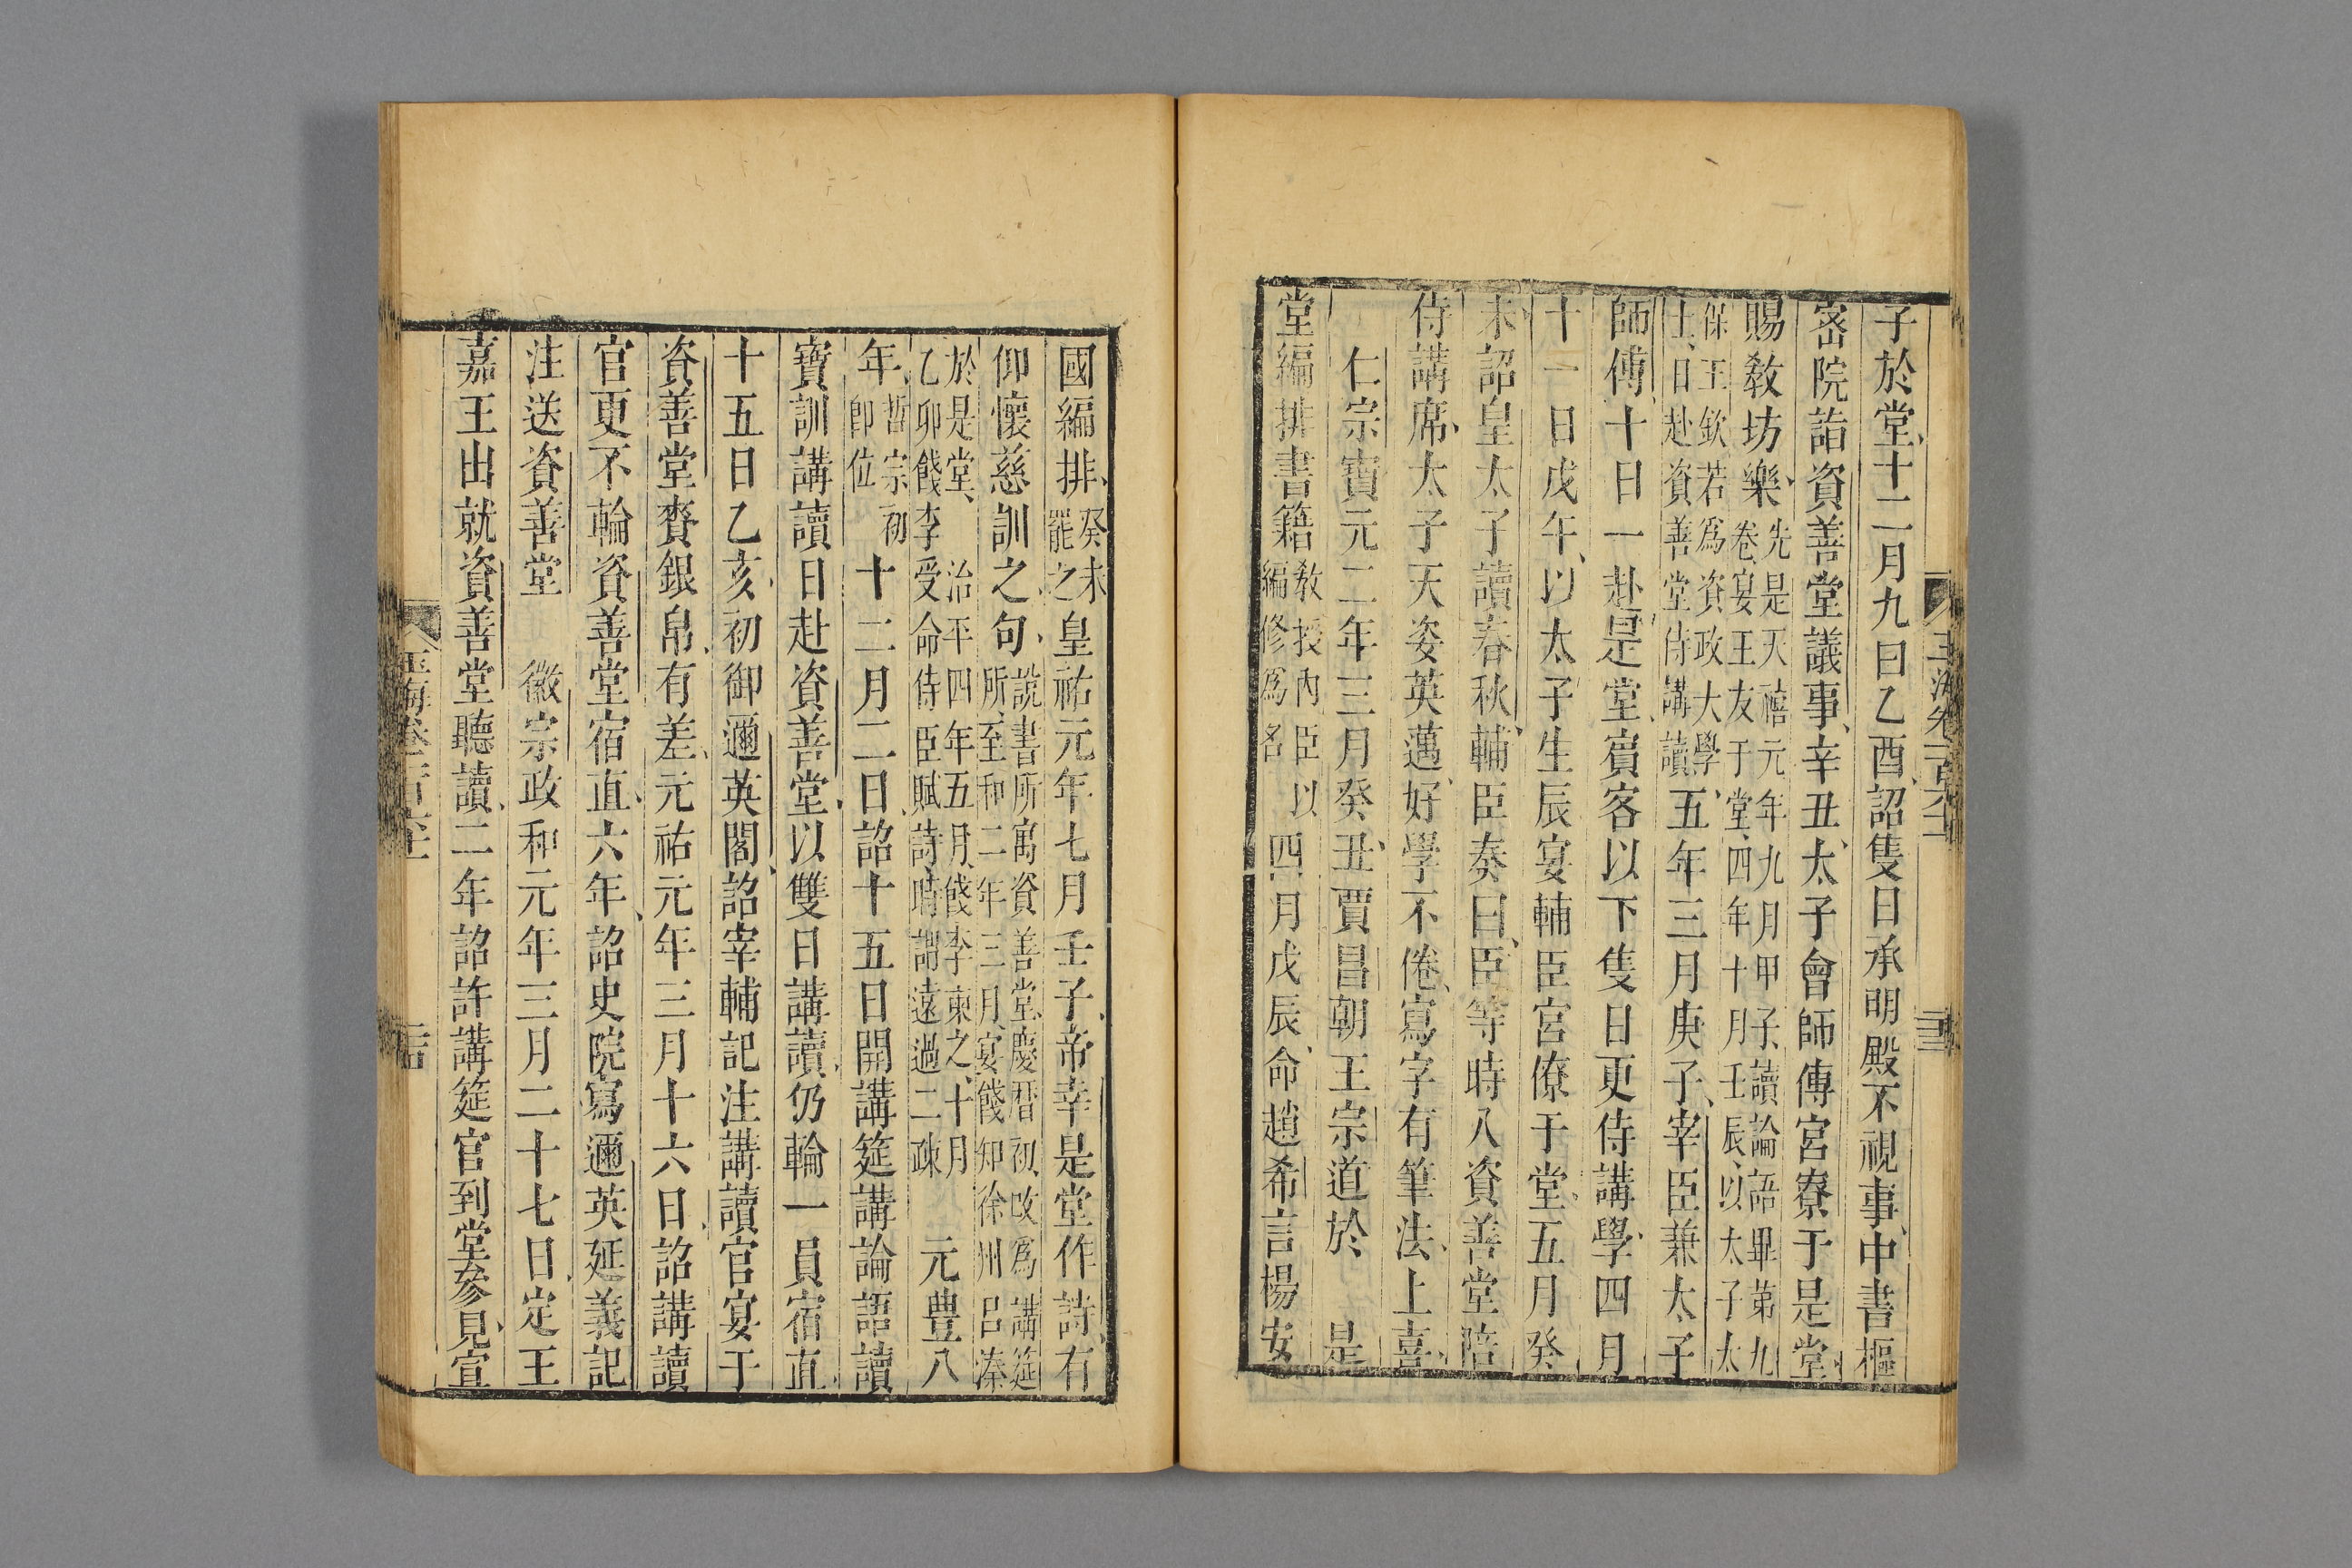 子於堂十二月九日乙酉詔隻日承明殿不視事中書樞
宻院詣資善堂議事辛丑太子會師傅宮寮于是堂
賜敎坊樂先是天禧元年九月甲子讀論語畢第九
卷宴王友于堂四年十月壬辰以太子太
保王欽若爲資政大學
士日赴資善堂侍講讀五年三月庚子宰臣兼太子
師傅十日一赴是堂賓客以下隻日更侍講學四月
十一日戊午以太子生辰宴輔臣宮僚于堂五月癸
未詔皇太子讀春秋輔臣奏曰臣等時入資善堂陪
侍講席太子天姿英邁好學不倦寫字有筆法上喜
仁宗寶元二年三月癸丑賈昌朝王宗道於 是
堂編排書籍敎授內臣以
編修爲名四月戊辰命趙希言楊安
國編排癸未
罷之皇祐元年七月壬子帝幸是堂作詩有
仰懷慈訓之句說書所寓資善堂慶曆初改爲講筵
所至和二年三月宴餞知徐州呂溱
於是堂 治平四年五月餞李柬之十月
乙卯餞李受命侍臣賦詩時謂遠過二疎 元豊八
年哲宗初
即位十二月二日詔十五日開講筵講論語讀
寶訓講讀日赴資善堂以雙日講讀仍輪一員宿直
十五日乙亥初御邇英閣詔宰輔記注講讀官宴于
資善堂賚銀帛有差元祐元年三月十六日詔講讀
官更不輪資善堂宿直六年詔史院寫邇英延義記
注送資善堂 徽宗政和元年三月二十七日定王
嘉王出就資善堂聽讀二年詔許講筵官到堂參見宣